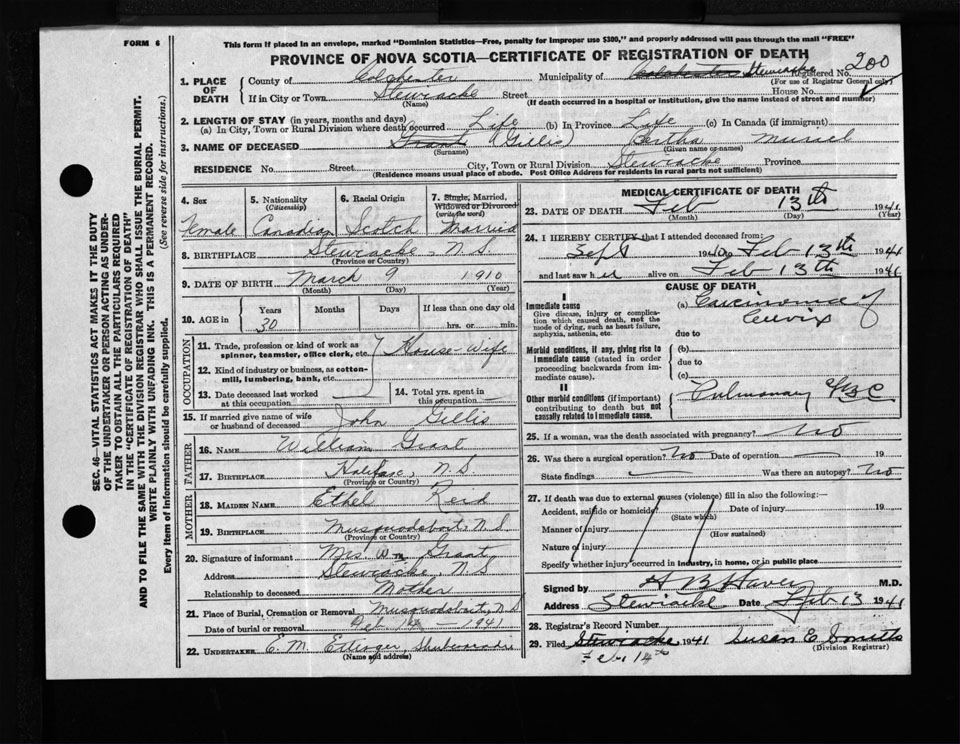 FORM 6
This form if placed in an envelope, marked "Dominion Statistics—Free, penalty for improper use $300," and properly addressed will pass through the mail "FREE"
PROVINCE OF NOVA SCOTIA—CERTIFICATE OF REGISTRATION OF DEATH
SEC. 46—VITAL STATISTICS ACT MAKES IT THE DUTY
OF THE UNDERTAKER OR PERSON ACTING AS UNDER-
TAKER TO OBTAIN ALL THE PARTICULARS REQUIRED
IN THE "CERTIFICATE OF REGISTRATION OF DEATH"
AND TO FILE THE SAME WITH THE DIVISION REGISTRAR WHO SHALL ISSUE THE BURIAL PERMIT.
WRITE PLAINLY WITH UNFADING INK. THIS IS A PERMANENT RECORD.
Every item of information should be carefully supplied. (See reverse side for instructions.)
1. PLACE OF DEATH
County of Colchester Municipality of Colchester Stewiacke Registered No. 200
(For use of Registrar General only)
If in City or Town Stewiacke Street House No.
(Name) (If death occurred in a hospital or institution, give the name instead of street and number)
2. LENGTH OF STAY (in years, months and days)
(a) In City, Town or Rural Division where death occurred Life (b) In Province Life (c) In Canada (if immigrant)
3. NAME OF DECEASED Grant (Gillis) Bertha Muriel
(Surname) (Given name or names)
RESIDENCE No. Street City, Town or Rural Division Stewiacke Province
(Residence means usual place of abode. Post Office Address for residents in rural parts not sufficient)
4. Sex Female
5. Nationality (Citizenship) Canadian
6. Racial Origin Scotch
7. Single, Married, Widowed or Divorced (write the word) Married
8. BIRTHPLACE Stewiacke, N.S.
(Province or Country)
9. DATE OF BIRTH March 9 1910
(Month) (Day) (Year)
10. AGE in Years 30 Months Days If less than one day old hrs. or min.
OCCUPATION
11. Trade, profession or kind of work as spinner, teamster, office clerk, etc. House-wife
12. Kind of industry or business, as cotton-mill, lumbering, bank, etc.
13. Date deceased last worked at this occupation
14. Total yrs. spent in this occupation
15. If married give name of wife or husband of deceased John Gillis
FATHER
16. NAME William Grant
17. BIRTHPLACE Halifax, N.S
(Province or Country)
MOTHER
18. MAIDEN NAME Ethel Reid
19. BIRTHPLACE Musquodoboit, N.S
(Province or Country)
20. Signature of informant Mrs Wm Grant
Address Stewiacke, N S
Relationship to deceased Mother
21. Place of Burial, Cremation or Removal Musquodoboit, N.S
Date of burial or removal Feb. — 1941
22. UNDERTAKER E. M. Ettinger, Shubenacadie
(Name and address)
MEDICAL CERTIFICATE OF DEATH
23. DATE OF DEATH Feb 13th 1941
(Month) (Day) (Year)
24. I HEREBY CERTIFY that I attended deceased from:
Sept 1940 to Feb 13th 1941
and last saw her alive on Feb 13th 1941
CAUSE OF DEATH
I
Immediate cause
Give disease, injury or complication which caused death, not the mode of dying, such as heart failure, asphyxia, asthenia, etc.
(a) Carcinoma of Cervix
due to
Morbid conditions, if any, giving rise to immediate cause (stated in order proceeding backwards from immediate cause).
(b)
due to
(c)
II
Other morbid conditions (if important) contributing to death but not causally related to immediate cause.
Pulmonary
25. If a woman, was the death associated with pregnancy? No
26. Was there a surgical operation? No Date of operation — 19
State findings Was there an autopsy? No
27. If death was due to external causes (violence) fill in also the following:—
Accident, suicide or homicide? Date of injury 19
(State which)
Manner of injury
(How sustained)
Nature of injury
Specify whether injury occurred in industry, in home, or in public place
Signed by M.D.
Address Stewiacke Date Feb 13 1941
28. Registrar's Record Number
29. Filed Stewiacke 1941 Susan E Smith
Feb. 14th (Division Registrar)